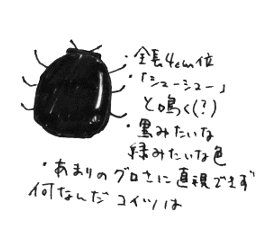 ・全長4cm位
・「シューシュー」
と鳴く(?)
・黒みたいな
緑みたいな色
・あまりのグロさに直視できず
何なんだコイツは